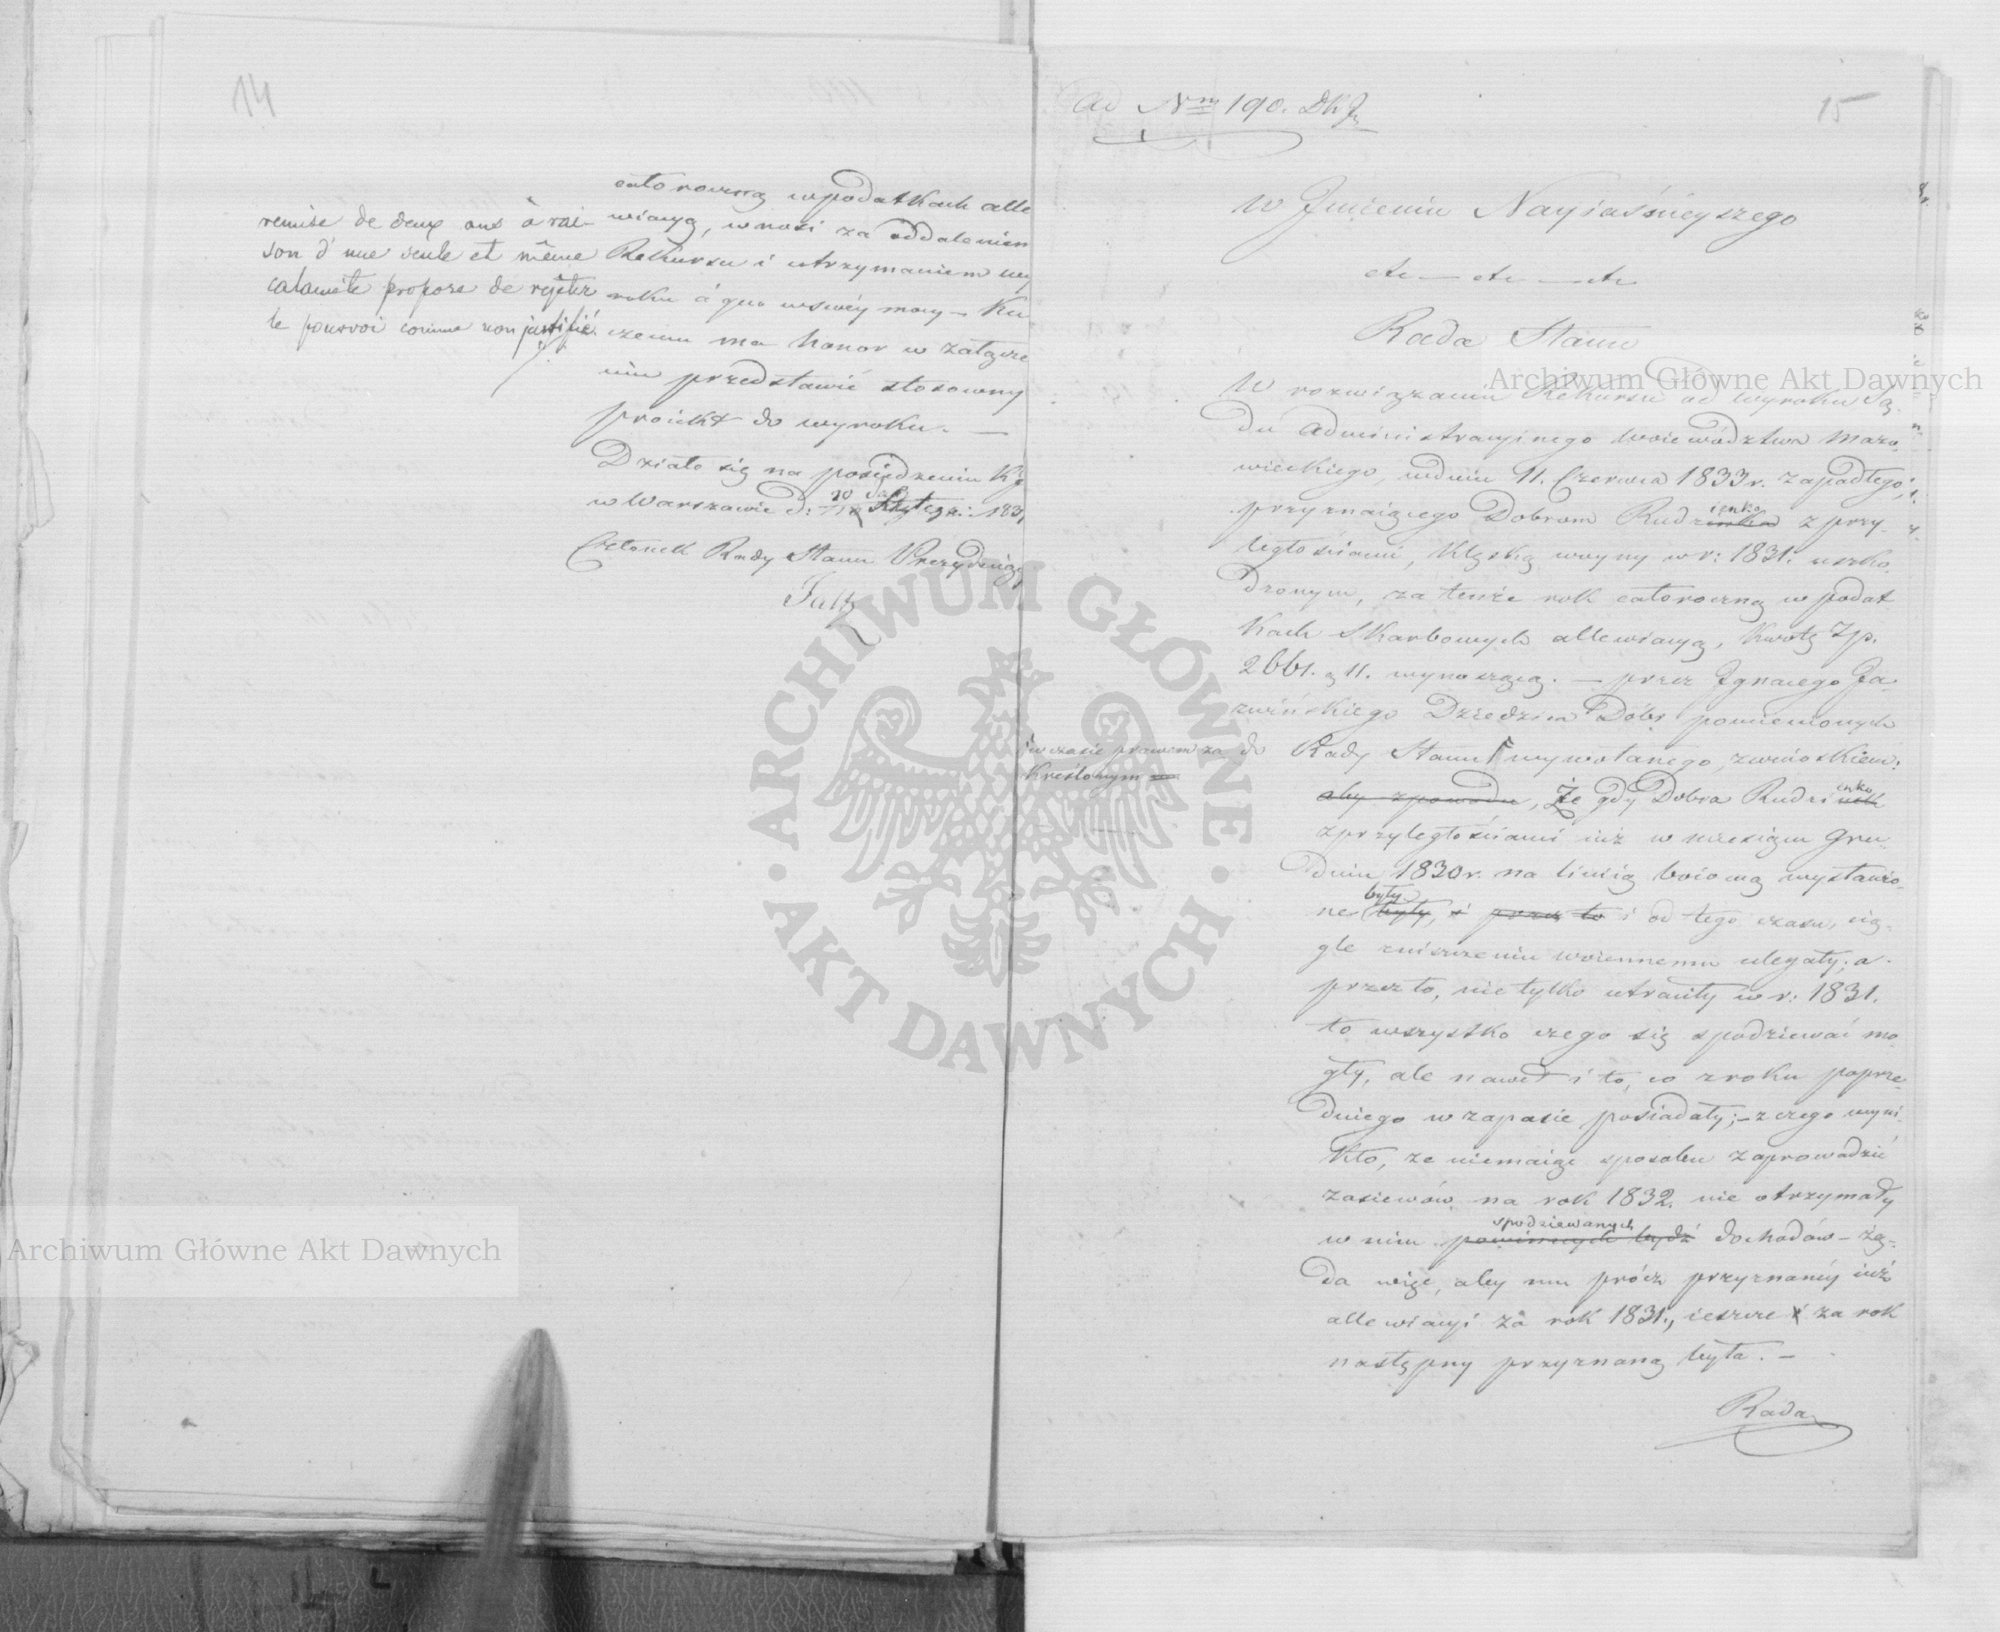 14
remise de deux ans à rai-
son d'une seule et même
calamité propose de rejeter
le pourvoi comme non justifié.
całoroczną w podatkach alle
wiacyą, wnosi za oddaleniem
Rekursu i utrzymaniem wy
roku á quo w swéy mocy – Ku
czemu ma honor w załącze
niu przedstawić stosowny
proiekt do wyroku. —
Działo się na posiedzeniu
w Warszawie d: 183
Członek Rady Stanu Prezyduiący
Ad Nrm 190.
15
W Imieniu Nayiaśnieyszego
etc — etc — etc
Rada Stanu
W rozwiązaniu Rekursu od wyroku Są
du Administracyinego Woiewództwa Mazo
wieckiego, w dniu 11. Czerwca 1833 r. zapadłego,
przyznaiącego Dobrom Rudzienko z przy-
ległościami, klęską woyny w r: 1831. uszko
dzonym, za tenże rok całoroczną w podat
kach Skarbowych allewiacyą, kwotę Zp.
2661. g 11. wynoszącą. — przez Ignacego Ja-
zwińskiego Dziedzica Dóbr pomienionych
w czasie prawem za
kreślonym
do Rady Stanu wywołanego, z wnioskiem:
aby z powodu, Że gdy Dobra Rudzienko
z przyległościami iuż w miesiącu Gru-
dniu 1830 r. na linią boiową wystawio-
ne były, i przez to i od tego czasu, cią-
gle zniszczeniu woiennemu ulegały; a
przez to, nie tylko utraciły w r: 1831.
to wszystko czego się spodziewać mo
gły, ale nawet i to, co z roku poprze-
dniego w zapasie posiadały; – z czego wyni
kło, że niemaiąc sposobu zaprowadzić
zasiewów na rok 1832. nie otrzymały
spodziewanych
w nim powinnych bydź dochodów – żą-
da więc, aby mu prócz przyznanéy iuż
allewiacyi za rok 1831., ieszcze i za rok
następny przyznaną była. —
Rada
Archiwum Główne Akt Dawnych
Archiwum Główne Akt Dawnych
ARCHIWUM GŁÓWNE
AKT DAWNYCH